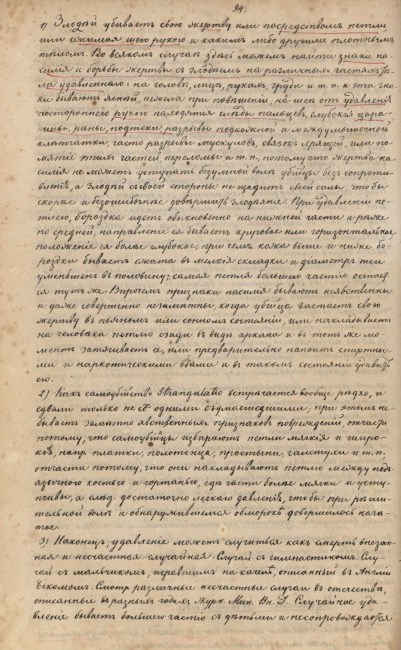 94.
1) Злодѣй убиваетъ свою жертву или посредствомъ петли
или сжимая шею рукою и какимъ либо другимъ плотнымъ
тѣломъ. Во всякомъ случаѣ здѣсь можемъ найти знаки на
силія и борьбы жертвы съ злодѣемъ на различныхъ частяхъ тѣ
ла удавленнаго: на головѣ, лицѣ, рукахъ, груди и т. п. и эти зна
ки бываютъ яснѣй, нежели при повѣшеніи, на шеѣ отъ удавленія
постороннею рукою находятся слѣды пальцевъ, глубокія цара
пины, раны, подтеки, разрывы подкожной и междумышечной
клѣтчатки, часто разрывы мускуловъ, связокъ, хрящей, или по
мятіе этихъ частей переломы и т. п., потому что жертва на
силія не можетъ уступать безумной волѣ убійцы безъ сопроти
вленія, а злодѣй съ своей стороны не щадитъ своей силы что бы
скорѣе и безошибочнѣе довершить злодѣяніе. При удавленіи пе
тлею, бороздка идетъ обыкновенно на нижней части и рѣже
по средней, направленіе ея бываетъ круговое или горизонтальное
положеніе ея болѣе глубокое; при семъ кожа выше и ниже бо
роздки бываетъ сжата въ мелкія складки и діаметръ шеи
уменьшенъ въ половину; самая петля большею частію остает
ся тутъ же. Впрочемъ признаки насилія бываютъ неявственны
и даже совершенно незамѣтны, когда убійца застаетъ свою
жертву въ пьяномъ или сонномъ состояніи, или накладываетъ
на человѣка петлю сзади въ видѣ аркана и въ тотъ же мо
ментъ затягиваетъ ее, или предварительно напоитъ спиртны
ми и наркотическими ядами и въ такомъ состояніи удавитъ
его.
2) Какъ самоубійство Strangulatio встрѣчается вообще рѣдко, и
едвали только не съ одними съумасшедшими; при этомъ не
бываетъ замѣтно явственныхъ признаковъ поврежденій, отчасти
потому, что самоубійцы избираютъ петли мягкія и широ
кія, напр. платки, полотенца, простыни, галстуки и т. п.
отчасти потому, что они накладываютъ петлю между подъ
язычною костью и гортанью, гдѣ части болѣе мягки и усту
пчивы, а слѣд. достаточно легкаго давленія, что бы при рѣши
тельной волѣ и обнаружившемся обморокѣ довершилось нача
тое.
3) Наконецъ, удавленіе можетъ случиться какъ смерть внезап
ная и несчастная случайная. Случай съ гимнастикомъ. Слу
чай съ мальчикомъ, игравшимъ на качелѣ, описанный въ Англій
скомъ. Смотр. различные несчастные случаи въ отечествѣ,
описанные въ разныхъ годахъ Журн. Мин. Вн. Д. Случайное уда
вленіе бываетъ большею частію съ дѣтьми и несопровождается